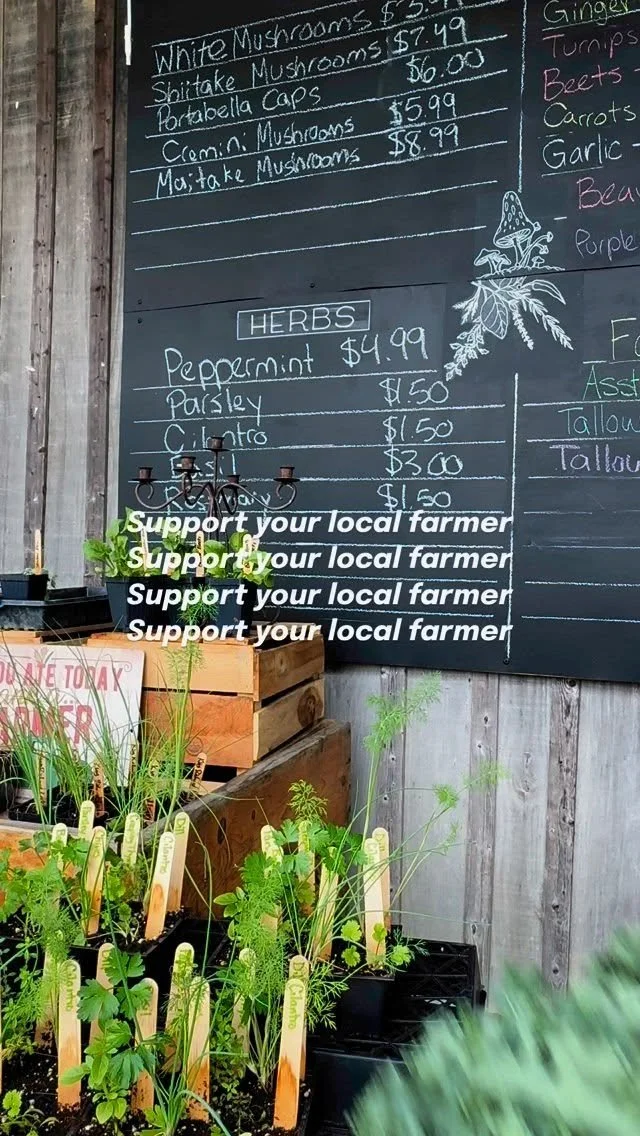 White Mushrooms
Shiitake Mushrooms $7.49
Portabella Caps $6.00
Cremini Mushrooms $5.99
Maitake Mushrooms $8.99
HERBS
Peppermint $4.99
Parsley $1.50
Cilantro $1.50
Basil $3.00
Rosemary $1.50
Ginger
Turnips
Beets -
Carrots
Garlic -
Beau
Purple
Asst
Tallow
Tallow
Support your local farmer
Support your local farmer
Support your local farmer
Support your local farmer
OU ATE TODAY
RMER
Cilantro
Cilantro